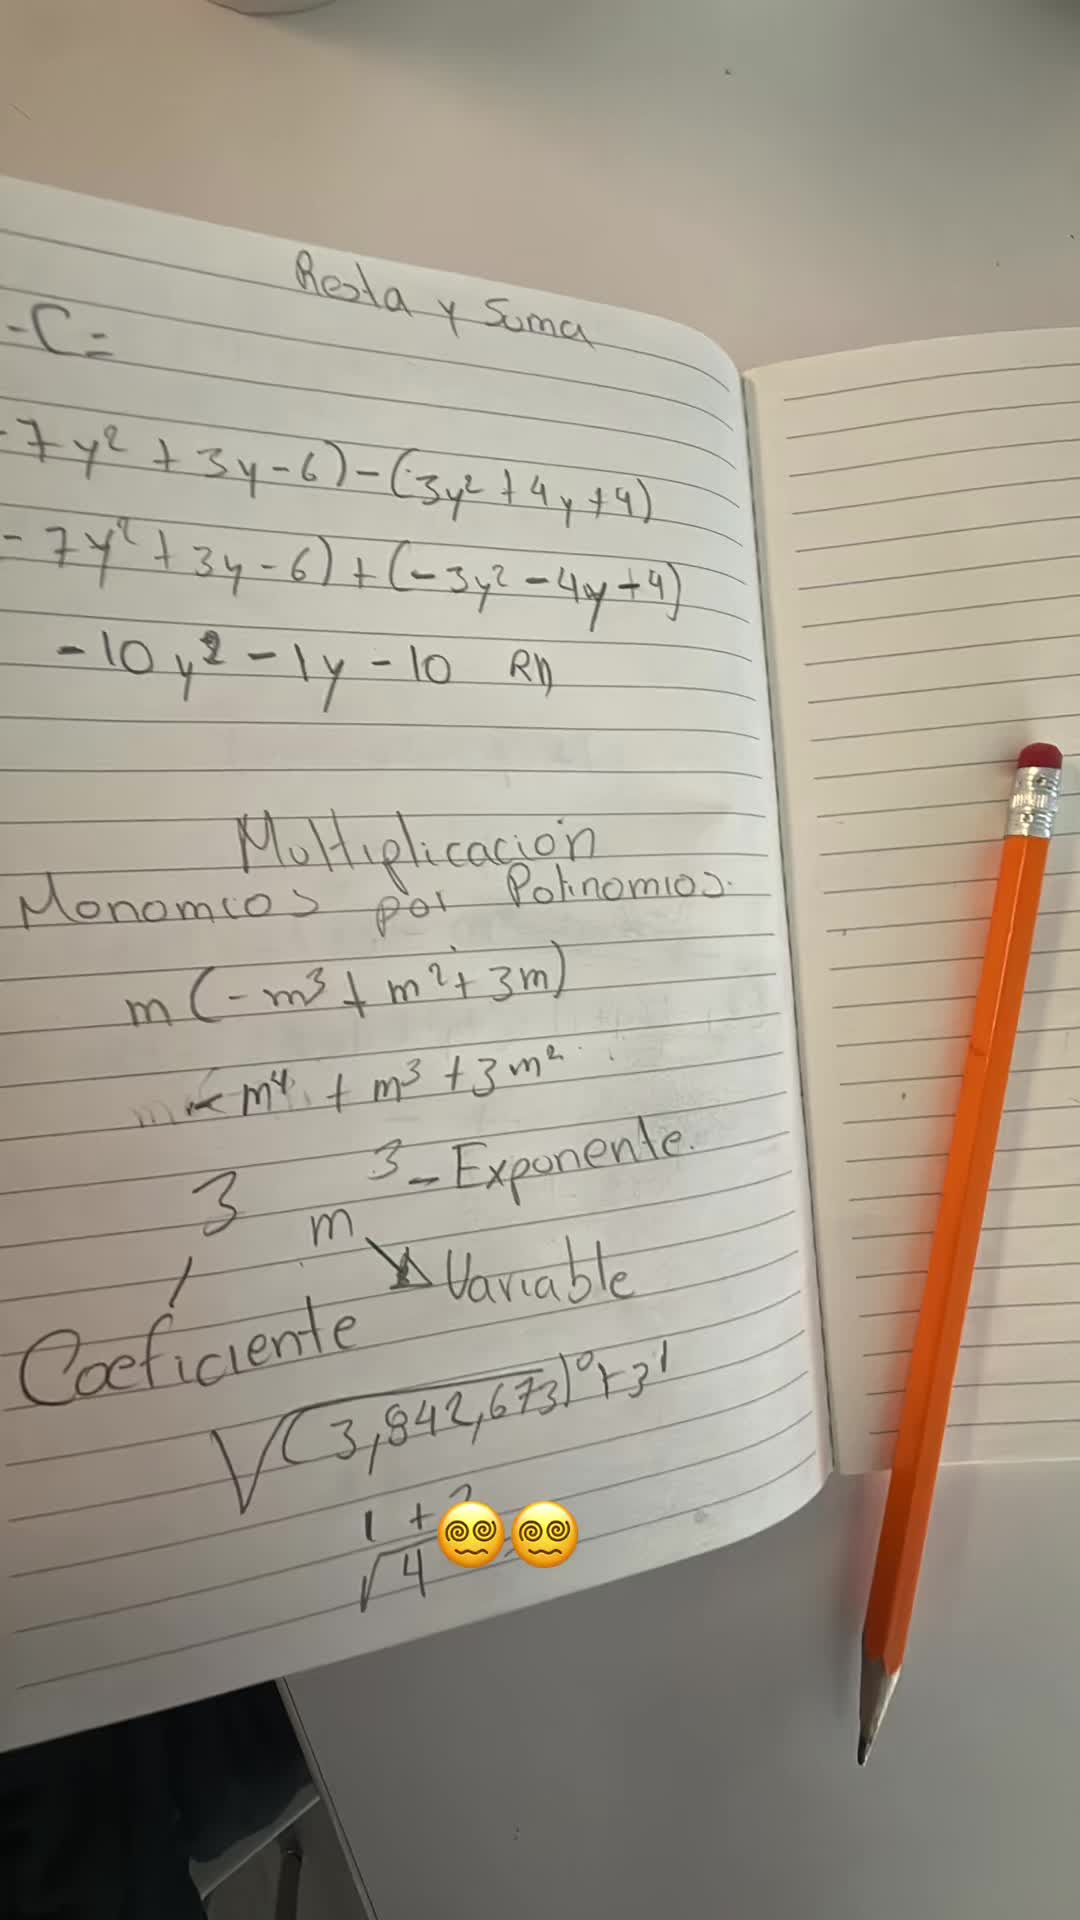 Resta y Suma
-C=
-7y² + 3y - 6) - (3y² + 4y + 4)
-7y² + 3y - 6) + (-3y² - 4y + 4)
-10y² - 1y - 10 R//
Multiplicación
Monomios por Polinomios.
m(-m³ + m² + 3m)
- m⁴ + m³ + 3m²
3 m 3 - Exponente.
Variable
Coeficiente
√(3,842,673)⁰ + 3¹
1 +
√4